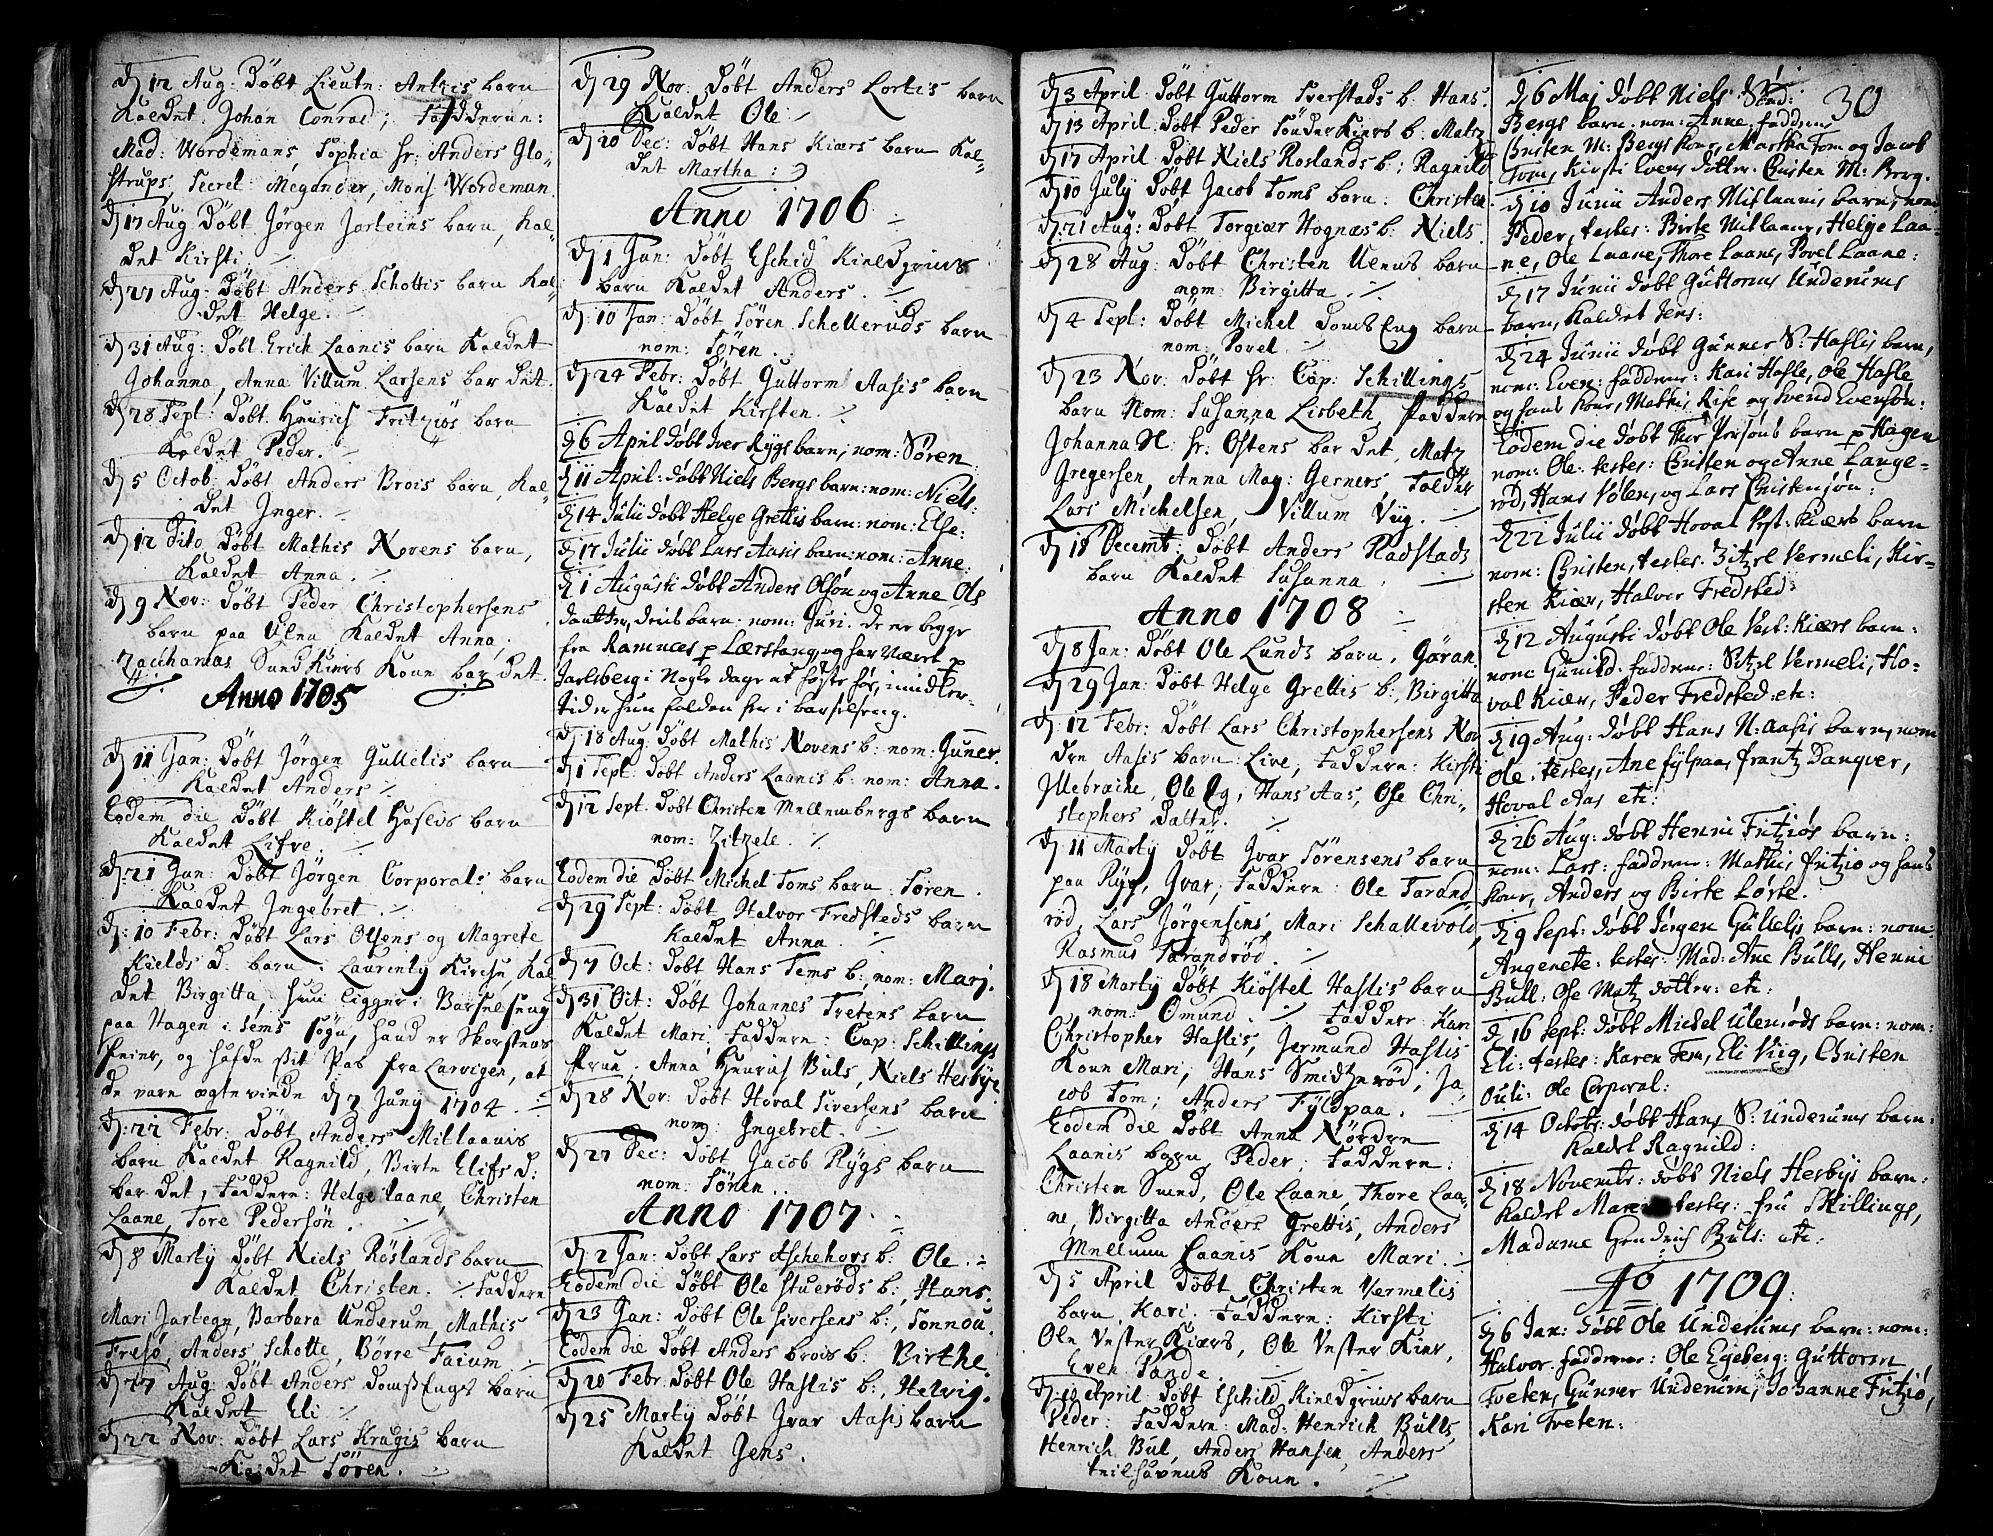 D 12 Aug: Døbt Lieutn: Antzis barn
Kaldet. Johan Conrad; Fadderne:
Mad: Wordemans, Sophia hr: Anders Glo-
strups, Secret: Megander, Mons Wordeman
D 17 Aug Døbt Jørgen Jorteins barn, Kal-
det Kirsti.
D 27 Aug: Døbt Anders Schottis barn Kal-
det Helge.
D 31 Aug: Døbt Erich Laanis barn Kaldet
Johanna, Anna Villum Larsens bar det.
D 28 Sept: Døbt Henrich Fritziøs barn
Kaldet Peder.
D 5 Octob: Døbt Anders Brois barn, Kal-
det Inger.
D 12 Dito Døbt Mathis Norens barn,
Kaldet Anna.
D 9 Nov: Døbt Peder Christophersens
barn paa Ulen Kaldet Anna,
Zacharias Sund Kiærs Kone bar det.
Anno 1705
D 11 Jan: Døbt Jørgen Gullelis barn
Kaldet Anders
Eodem die Døbt Kiøstel Haslis barn
Kaldet Lifve.
D: 21 Jan: Døbt Jørgen Corporals barn
Kaldet Ingebret.
D: 10 Febr: Døbt Lars Olsens og Magrete
Kields d: barn i Laurentÿ Kirche, Kal
det Birgitta, hun ligger i Barselseng
paa Hagen i Sems Sogn, hand er Skorstens
feier, og hafde sit Pas fra Larvigen, at
de vare ægte viede D 7 Junÿ 1704.
D: 22 Febr: Døbt Anders Mitlaanis
barn Kaldet Ragnild, Birte Elifs d:
bar det, Faddere: Helge Laane, Christen
Laane, Tore Pedersøn.
D 8 Martÿ Døbt Niels Røslands barn
Kaldet Christen. Faddere
Mari Jartegn, Barbara Underum, Mathis
Fresø, Anders Schotte, Børre Faium
D 27 Aug: Døbt Anders Domss Engs barn
Kaldet Eli
D 22 Nov: Døbt Lars Kragis barn
Kaldet Søren.
D 29 Nov: Døbt Anders Lortis barn
Kaldet Ole
D 20 Dec: Døbt Hans Kiærs barn Kal-
det Martha:
Anno 1706
D 1 Jan: Døbt Eschid Kieldgrius
barn Kaldet Anders.
D 10 Jan: Døbt Søren Schelleruds barn
nom: Søren.
D 24 Febr: Døbt Guttorm Aasis barn
Kaldet Kirsten.
D 6 April døbt Iver Rygs barn, nom: Søren
D 11 April: døbt Niels Bergs barn: nom: Niels:
D 14 Julii døbt Helge Grettis barn: nom: Else:
D 17 Julii døbt Lars Aasis barn: nom: Anne:
D 1 Augusti døbt Anders Olsøn og Anne Ols
datter, deris barn: nom: Guri. de er begge
fra Ramnes p Lærstang, og har været p
Jarlsberg i Nogle dage at høste hør, imidler-
tid er hun falden her i barselseng.
D 18 Aug: Døbt Mathis Novens b: nom: Guner.
D 1 Sept: Døbt Anders Laanis b: nom: Anna.
D 12 Sept: Døbt Christen Mellembergs barn
nom: Zitzele.
Eodem die Døbt Michel Toms barn: Søren.
D 29 Sept: Døbt Halvor Fredsteds barn
Kaldet Anna.
D 7 Oct: Døbt Hans Tems b:, nom: Mari.
D 31 Oct: Døbt Johannes Tretens barn
Kaldet Mari, Faddere: Cap: Schillings
frue. Anna Henrich Buls, Niels Hesbÿe
D 28 Nov: Døbt Hoval Siversens barn
nom: Ingebret.
D 27 Dec: Døbt Jacob Rÿgs barn
nom: Søren.
Anno 1707
D 2 Jan: Døbt Lars Aschehovs b: Ole.
Eodem die Døbt Ole Stuerøds b:, Hans.
D 23 Jan: Døbt Ole Siversens b:, Tonnou.
Eodem die Døbt Anders Brois b: Birthe.
D 20 Febr: Døbt Ole Haslis b:, Helvig.
D 25 Martÿ Døbt Ivar Aasis barn
Kaldet Jens.
D 3 April Døbt Guttorm Sverstads b: Hans.
D 13 April Døbt Peder Sønder Kiers b: Matz
D 17 April Døbt Niels Roslands b: Ragnild
D 10 Julÿ Døbt Jacob Toms barn: Christen
D: 21 Aug: Døbt Torgiær Hognæs b: Niels.
D 28 Aug: Døbt Christen Ulens barn
nom: Birgitta.
D 4 Sept: Døbt Michel Doms Eng barn
nom: Povel.
D 23 Nov: Døbt hr: Cap: Schillings
barn Nom: Susanna Lisbeth, Faddere
Johanna H hr: Østens bar det, Matz
Gregersen, Anna Mag: Gerners Tolder
Lars Michelsen, Villum Viig.
D 18 Decemb: Døbt Anders Radstads
barn Kaldet Susanna
Anno 1708
D 8 Jan: Døbt Ole Lunds barn, Gøran
D 29 Jan: Døbt Helge Grettis b:, Birgitta
D: 12 Febr: Døbt Lars Christophersens Nor
dre Aasis barn: Live, Faddere: Kirsti
Illebreche, Ole Eg, Hans Aas, Ose Chri-
stophers Datter.
D 11 Martÿ Døbt Ivar Sørensens barn
paa Rÿg, Ivar, Faddere: Ole Tarand
rød, Lars Jørgensens, Mari Schallevold,
Rasmus Tarandrød.
D 18 Martÿ Døbt Kiøstel Haslis barn
nom: Omund. Faddere Kari
Christopher Haslis, Jermund Haslis
Kone Mari, Hans Smidsrød, Ja
cob Tom; Anders Fÿldpaa.
Eodem die Døbt Anna Nørdre
Laanis barn Peder; Faddere:
Christen Sund, Ole Laane, Thore Laa-
ne, Birgitta Anders Grettis, Anders
Mellum Laanis Kone Mari.
D 5 April Døbt Christen Vermelis
barn Kari. Faddere: Kirsti
Ole Vester Kiærs, Ole Vester Kier,
Even Pande.
D: 10 April Døbt Eschild Kieldgrius barn
Peder: Faddere: Mad: Henrich Bulls,
Henrich Bul, Anders Hansen, Anders
Kone.
30
D 6 Maj døbt Niels Snd:
Bergs barn: nom: Anne, fadderne
Christen M: Bergs Kone, Martha Tom og Jacob
Toms, Kirsti Evens dotter. Christen M: Berg.
D 10 Junii Anders Mitlaanis barn, nom:
Peder, testes: Birte Mitlaane, Helge Laa-
ne, Ole Laane, Thore Laane, Povel Laane:
D 17 Junii døbt Guttorms Underums
barn, Kaldet Jens:
D 24 Junii døbt Gunner S: Haslis barn,
nom: Even: fadderne: Kari Hasle, Ole Hasle
og hans Kone, Mathis Rise og Svend Evensøn:
Eodem die døbt Thor Persøns barn p Hagen
nom: Ole. testes: Christen og Anne Lange-
rød, Hans Volen, og Lars Christensøn:
D 22 Julii døbt Hoval Vest: Kiærs barn
nom: Christen, testes: Zitzel Vermeli, Kir-
sten Kiær, Halvor Fredsted:
D 12 Augusti døbt Ole Vest: Kiærs barn:
nom: Gunild. fadderne: Sitzel Vermeli, Ho-
val Kiær, Peder Fredsted: etc:
D 19 Aug: døbt Hans N: Aasis barn, nom
Ole. testes, Ane fylpaa, frantz Danqver,
Hoval Aas etc:
D 26 Aug: døbt Henni Fritziøs barn:
nom: Lars: fadderne: Mathis fritziø og hans
Kone, Anders og Birte Lørte.
D 9 Sept: døbt Jørgen Gullelis barn: nom:
Angenete: testes: Mad: Ane Bulls, Henni
Bull: Ose Matz dotter: etc:
D 16 Sept: døbt Michel Ulerøds barn: nom:
Eli: testes: Karen Tem, Eli Viig, Christen
Ouli: Ole Corporal:
D 14 Octobr: døbt Hans S: Underums barn:
Kaldet Ragnild:
D 18 Novembr: døbt Niels Hesbÿs barn:
Kaldet Maren testes: fru Skillings,
Madame Hendrich Buls: etc:
Ao 1709:
D 6 Jan: døbt Ole Underums barn: nom:
Halvor. fadderne: Ole Egeberg: Guttorm
Treten, Gunner Underum, Johanne Fritziø,
Kari Treten: